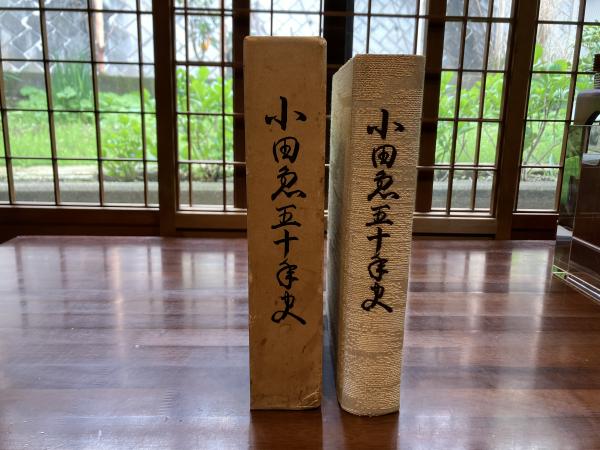 小田急五十年史
小田急五十年史